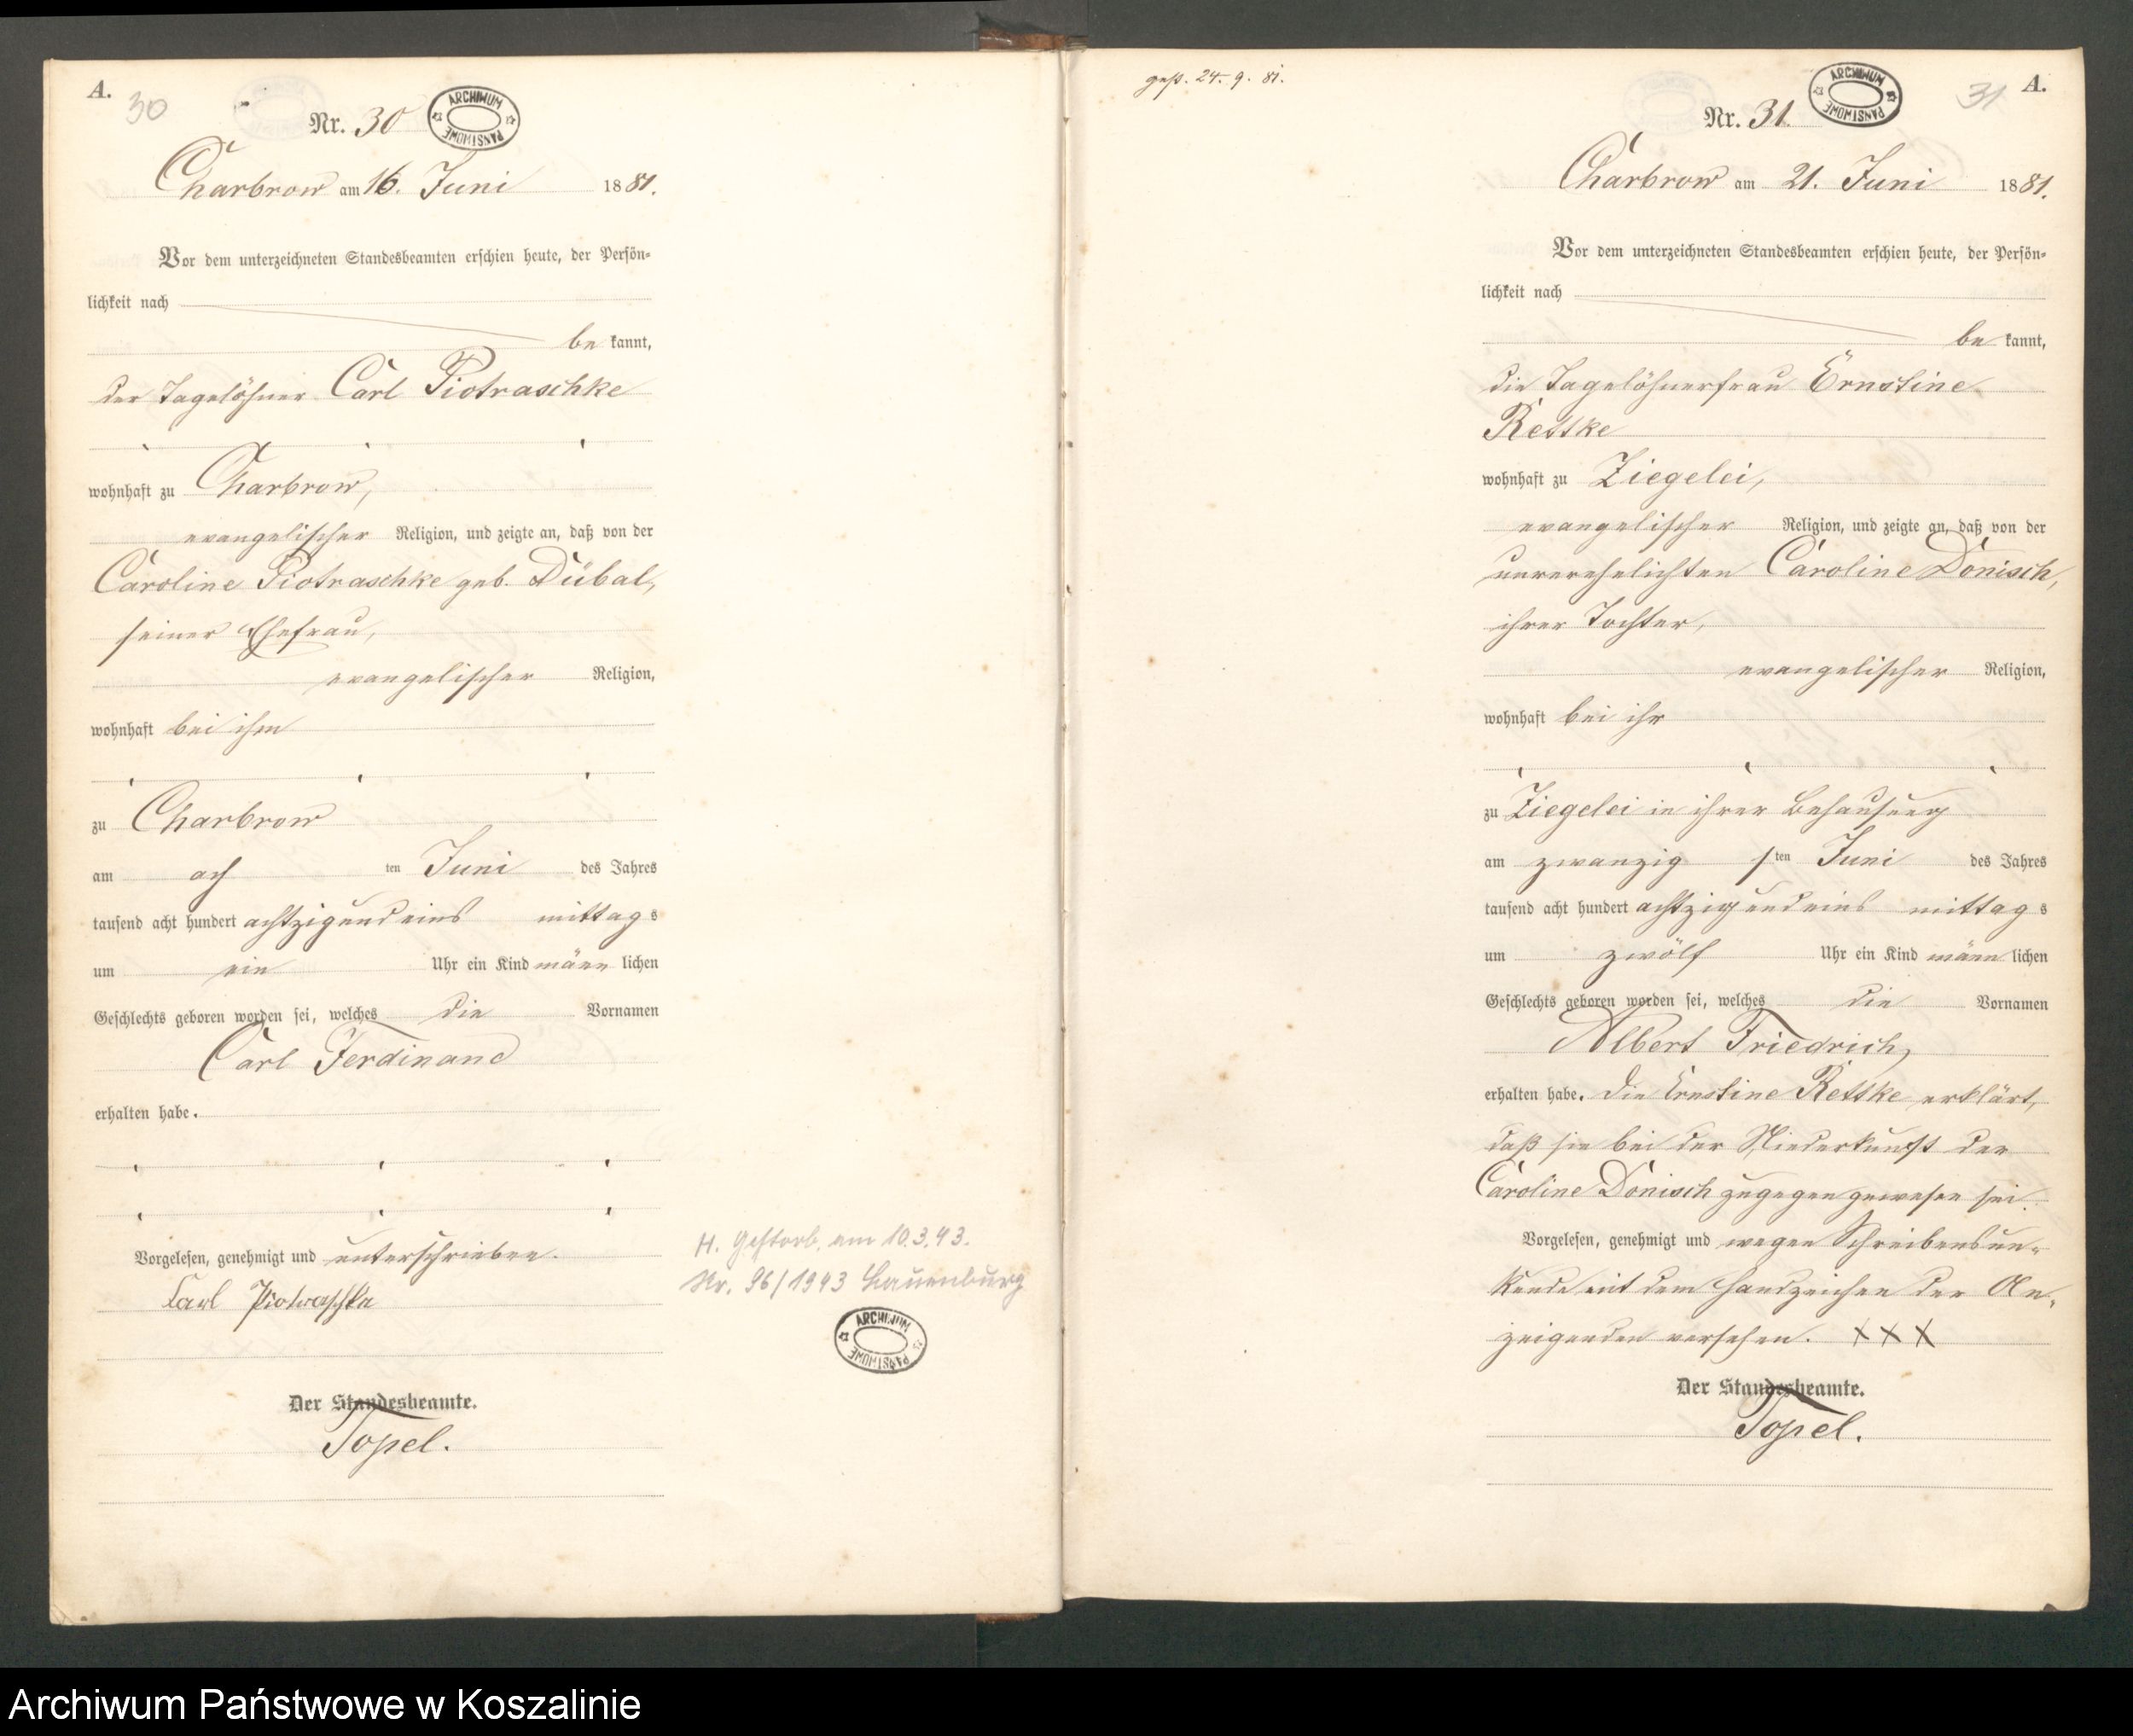 A.
30
Nr. 30
ARCHIWUM PAŃSTWOWE
Charbrow am 16. Juni 1881.
Vor dem unterzeichneten Standesbeamten erschien heute, der Persön-
lichkeit nach
be kannt,
der Tagelöhner Carl Piotraschke
wohnhaft zu Charbrow,
evangelischer Religion, und zeigte an, daß von der
Caroline Piotraschke geb. Dübal,
seiner Ehefrau,
evangelischer Religion,
wohnhaft bei ihm
zu Charbrow
am ach ten Juni des Jahres
tausend acht hundert achtzigundeins mittag s
um ein Uhr ein Kind männ lichen
Geschlechts geboren worden sei, welches die Vornamen
Carl Ferdinand
erhalten habe.
Vorgelesen, genehmigt und unterschrieben.
Carl Piotraschke
Der Standesbeamte.
Topel.
H. Gestorb. am 10.3.43.
Nr. 96/1943 Lauenburg
ARCHIWUM PAŃSTWOWE
gest. 24. 9. 81.
A.
31
Nr. 31.
ARCHIWUM PAŃSTWOWE
Charbrow am 21. Juni 1881.
Vor dem unterzeichneten Standesbeamten erschien heute, der Persön-
lichkeit nach
be kannt,
die Tagelöhnerfrau Ernstine
Rettke
wohnhaft zu Ziegelei,
evangelischer Religion, und zeigte an, daß von der
unverehelichten Caroline Donisch,
ihrer Tochter,
evangelischer Religion,
wohnhaft bei ihr
zu Ziegelei in ihrer Behausung
am zwanzig sten Juni des Jahres
tausend acht hundert achtzigundeins mittag s
um zwölf Uhr ein Kind männ lichen
Geschlechts geboren worden sei, welches die Vornamen
Albert Friedrich,
erhalten habe. Die Ernstine Rettke erklärt,
daß sie bei der Niederkunft der
Caroline Donisch zugegen gewesen sei.
Vorgelesen, genehmigt und wegen Schreibensun-
kunde mit dem Handzeichen der An-
zeigenden versehen. XXX
Der Standesbeamte.
Topel.
Archiwum Państwowe w Koszalinie